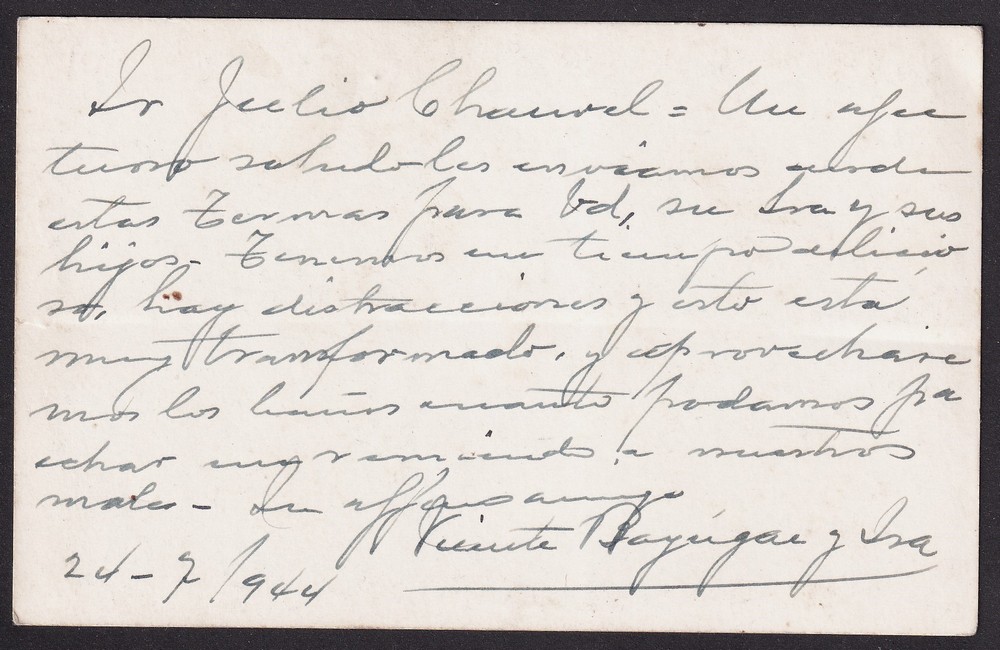 Sr Julio Chauvel = Un afec
tuoso saludo les enviamos desde
estas Termas para Vd, su Sra y sus
hijos - Tenemos un tiempo delicio
so, hay distracciones y esto está
muy transformado, y aprovechare
mos los baños cuanto podamos pa
echar un remiendo a nuestros
males - Su affmo amigo
Vicente y Sra
24-7/944